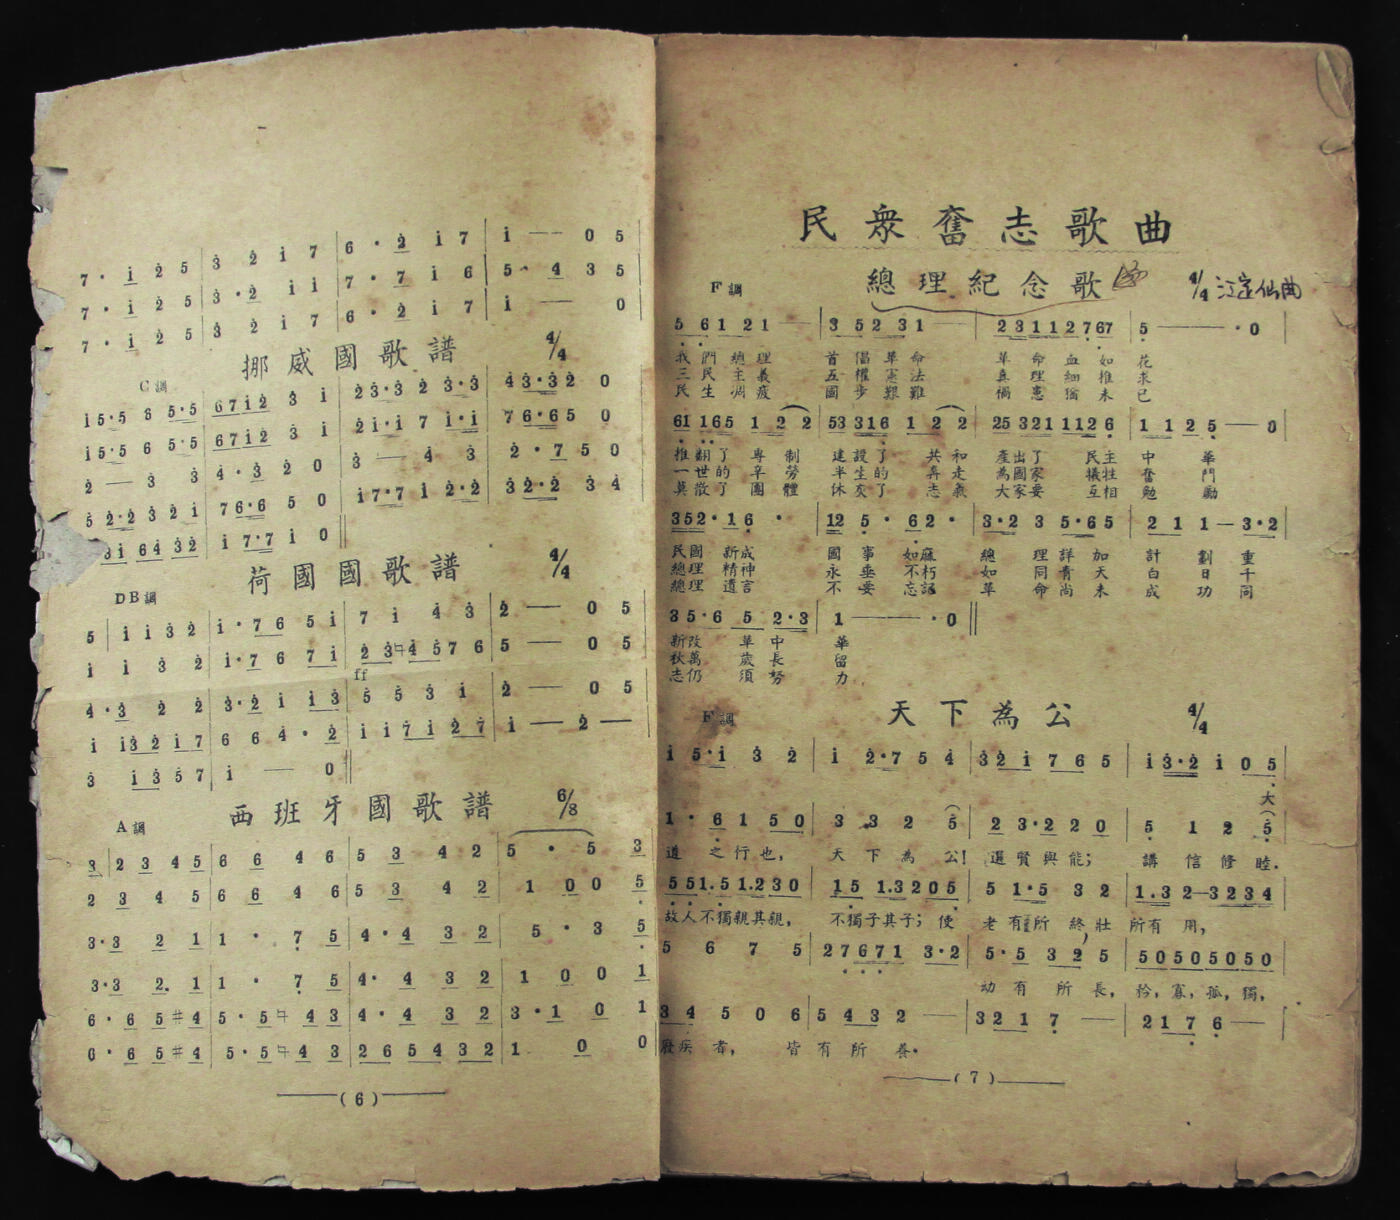 7 · i 2 5 | 3 2 i 7 | 6 · 2 i 7 | i — — 0 5
7 · i 2 5 | 3 · 2 i i | 7 · 7 i 6 | 5 · 4 3 5
7 · i 2 5 | 3 2 i 7 | 6 · 2 i 7 | i — — 0
挪威國歌譜 4/4
C調
i 5·5 6 5·5 | 6 7 i 2 3 i | 2 3·3 2 3·3 | 4 3·3 2 0
i 5·5 6 5·5 | 6 7 i 2 3 i | 2 i·i 7 i·i | 7 6·6 5 0
2 — 3 3 | 4 · 3 2 0 | 3 — 4 3 | 2 · 7 5 0
5 2·2 3 2 i | 7 6·6 5 0 | i 7·7 i 2·2 | 3 2·2 3 4
3 i 6 4 3 2 | i 7·7 i 0
荷國國歌譜 4/4
DB調
5 | i i 3 2 | i · 7 6 5 i | 7 i 4 3 | 2 — 0 5
i i 3 2 | i · 7 6 7 i | 2 3 ♮4 5 7 6 | 5 — 0 5
ff
4 · 3 2 2 | 3 · 2 i i 3 | 5 5 3 i | 2 — 0 5
i i 3 2 i 7 | 6 6 4 · 2 | i i 7 i 2 7 | i — 2 —
3 i 3 5 7 | i — 0
西班牙國歌譜 6/8
A調
3 | 2 3 4 5 | 6 6 4 6 | 5 3 4 2 | 5 · 5 3
2 3 4 5 | 6 6 4 6 | 5 3 4 2 | 1 0 0 5
3·3 2 1 | 1 · 7 5 | 4·4 3 2 | 5 · 3 5
3·3 2. 1 | 1 · 7 5 | 4·4 3 2 | 1 0 0 1
6 · 6 5 #4 | 5 · 5 ♮4 3 | 4 · 4 3 2 | 3 · 1 0 1
0 · 6 5 #4 | 5 · 5 ♮4 3 | 2 6 5 4 3 2 | 1 0 0
(6)
民衆奮志歌曲
F調 總理紀念歌 4/4 江定仙曲
5 6 1 2 1 — | 3 5 2 3 1 — | 2 3 1 1 2 7 6 7 | 5 — · 0
我們總理 首倡革命 革命血如花
三民主義 五權憲法 真理細推求
民生凋疲 國步艱難 禍患猶未已
61 165 1 2 2 | 53 316 1 2 2 | 25 321 112 6 | 1 1 2 5 — 0
推翻了專制 建設了共和 產出了民主中華
一世的辛勞 半生的奔走 為國家犧牲奮鬥
莫散了團體 休灰了志氣 大家要互相勉勵
352·1 6 · | 12 5 · 6 2 · | 3·2 3 5·6 5 | 2 1 1 — 3·2
民國新成 國事如麻 總理詳加計劃 重
總理精神 永垂不朽 如同青天白日 千
總理遺言 不要忘記 革命尚未成功 同
3 5·6 5 2·3 | 1 — · 0
新改革中華
秋萬歲長留
志仍須努力
F調 天下為公 4/4
i 5·i 3 2 | i 2·7 5 4 | 3 2 i 7 6 5 | i 3·2 i 0 5
大
1 · 6 1 5 0 | 3 3 2 5 | 2 3·2 2 0 | 5 1 2 5
道之行也, 天下為公! 選賢與能; 講信修睦.
5 5 1.5 1.2 3 0 | 1.5 1.3 2 0 5 | 5 1·5 3 2 | 1.3 2—3 2 3 4
故人不獨親其親, 不獨子其子; 使老有所終, 壯所有用,
5 6 7 5 | 2 7 6 7 1 3·2 | 5·5 3 2 5 | 5 0 5 0 5 0 5 0
幼有所長, 矜, 寡, 孤, 獨,
3 4 5 0 6 | 5 4 3 2 — | 3 2 1 7 — | 2 1 7 6 —
廢疾者, 皆有所養.
(7)